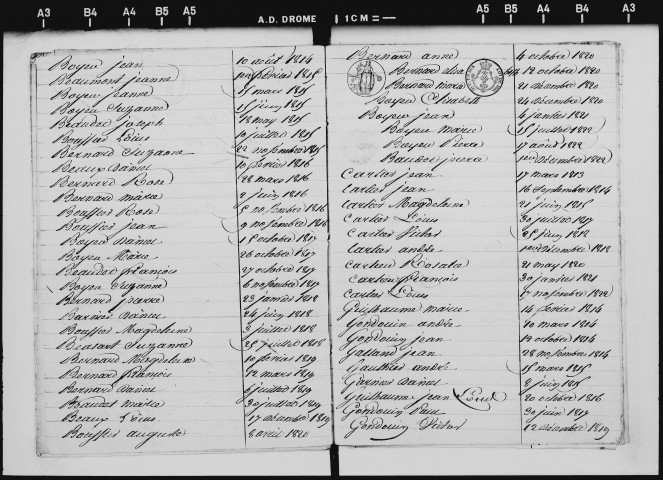 A3 B4 A4 B5 A5 A.D. DROME 1CM A5 B5 A4 B4 A3
Boyer jean 10 août 1814
Beaumont jeanne 1er février 1815
Boyer jeanne 15 mars 1815
Boyer Suzanne 15 juin 1815
Beaudet joseph 18 may 1815
Bouffier Louis 10 juillet 1815
Bernard Suzanne 22 novembre 1815
Daniel 10 février 1816
Bernard Rose 28 mars 1816
Bernard marie 2 juin 1816
Bouffier Rose 5 novembre 1816
Bouffier jean 9 novembre 1816
Boyer Daniel 15 octobre 1817
Boyer Marie 26 octobre 1817
françois 27 octobre 1817
Boyer Suzanne 6 novembre 1817
Bernard pierre 23 janvier 1818
Daniel 24 juin 1818
Bouffier Magdeleine 3 juillet 1818
Suzanne 25 juillet 1818
Bernard Magdeleine 10 février 1819
Bernard françois 12 mars 1819
Bernard Daniel 6 juillet 1819
marie 30 juillet 1819
Louis 17 décembre 1819
Bouffier auguste 8 avril 1820
Bernard anne 4 octobre 1820
Bernard 12 octobre 1820
Bernard marie 21 décembre 1820
Boyer Elisabeth 24 décembre 1820
Boyer jean 4 janvier 1821
Boyer marie 15 juillet 1822
Boyer Pierre 17 août 1822
pierre 1er décembre 1822
Cartier jean 17 mars 1813
Cartier jean 16 septembre 1814
Cartier Magdeleine 21 juin 1815
Cartier Louis 30 juillet 1817
Cartier Victor 25 juin 1818
Cartier andré 1er décembre 1818
Cartier Rosalie 21 may 1820
Cartier françois 30 janvier 1821
Cartier Louis 17 novembre 1822
Guilhaume marie 14 février 1814
Gondouin andré 10 mars 1814
Gondouin jean 12 octobre 1814
Galland jean 28 novembre 1814
Gauthier andré 15 mars 1815
Garnier Daniel 2 juin 1815
Guilhaume jean 20 octobre 1816
Gondouin Paul 30 juin 1819
Gondouin Victor 12 décembre 1819